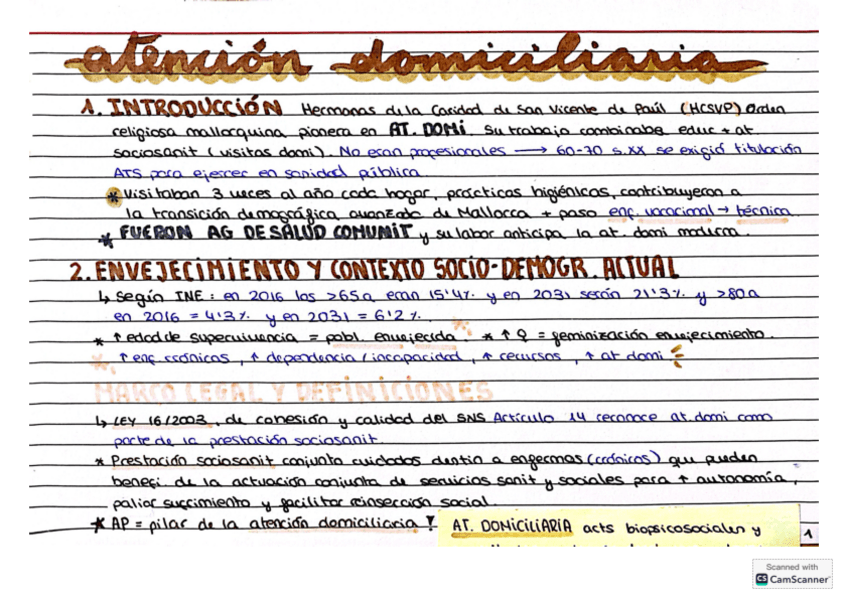 atención domiciliaria
1. INTRODUCCIÓN Hermanas de la Caridad de San Vicente de Paúl (HCSVP) Orden
religiosa mallorquina pionera en AT. DOMI. Su trabajo combinaba educ + at
sociosanit (visitas domi). No eran profesionales → 60-70 s.XX se exigió titulación
ATS para ejercer en sanidad pública.
* Visitaban 3 veces al año cada hogar, prácticas higiénicas, contribuyeron a
la transición demográfica avanzada de Mallorca + paso enf. vocacional → técnica
* FUERON AG DE SALUD COMUNIT y su labor anticipa la at. domi moderna
2. ENVEJECIMIENTO Y CONTEXTO SOCIO-DEMOGR. ACTUAL
↳ Según INE: en 2016 los >65a eran 15'4% y en 2031 serán 21'3% y >80a
en 2016 = 4'3% y en 2031 = 6'2%.
* ↑ edad de supervivencia = pobl. envejecida. * ↑ ♀ = feminización envejecimiento.
↑ enf crónicas, ↑ dependencia / incapacidad, ↑ recursos, ↑ at domi
MARCO LEGAL Y DEFINICIONES
↳ LEY 16/2003, de cohesión y calidad del SNS Artículo 14 reconoce at. domi como
parte de la prestación sociosanit.
* Prestación sociosanit conjunto cuidados destin a enfermos (crónicos) que pueden
benefi. de la actuación conjunta de servicios sanit y sociales para ↑ autonomía,
paliar sufrimiento y facilitar reinserción social.
* AP = pilar de la atención domiciliaria
AT. DOMICILIARIA acts biopsicosociales y
1
Scanned with
CS CamScanner